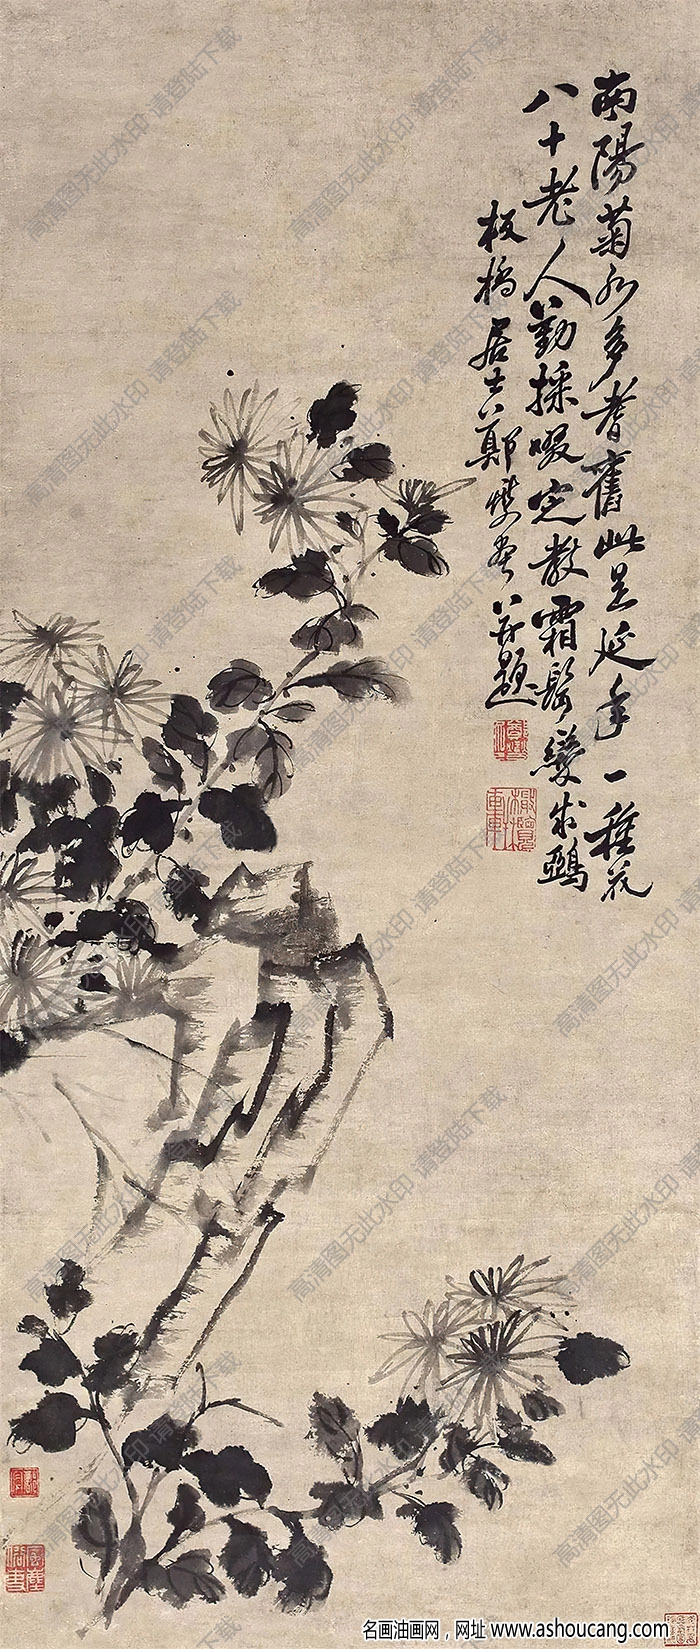 南陽菊水多耆舊此是延年一種花
八十老人勤採啜定教霜鬢變成鴉
板橋居士鄭燮畫并題
鄭燮
高清图无此水印 请登陆下载
名画油画网，网址 www.ashoucang.com